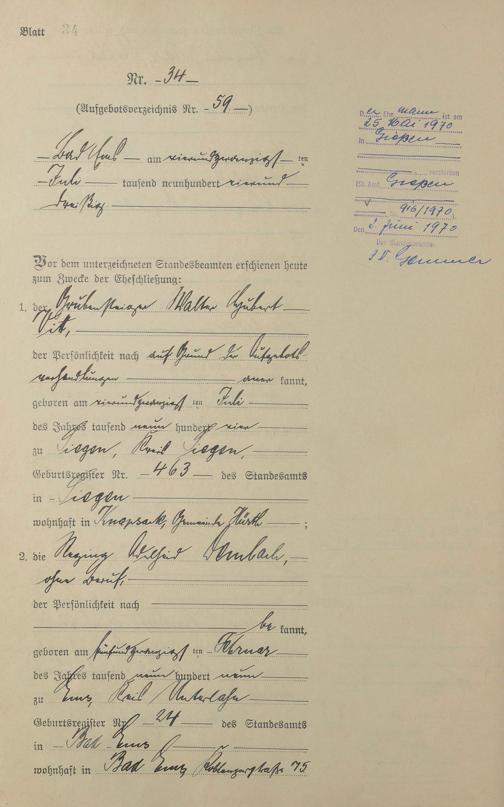 Blatt 34
Nr. 34
(Aufgebotsverzeichnis Nr. 59)
Bad Ems am vierundzwanzigsten
Juli tausend neunhundert vierund
dreißig
Vor dem unterzeichneten Standesbeamten erschienen heute
zum Zwecke der Eheschließung:
1. der Grubensteiger Walter Hubert
der Persönlichkeit nach auf Grund der Aufgebots-
verhandlungen aner kannt,
geboren am vierundzwanzigsten Juli
des Jahres tausend neun hundert vier
zu Siegen, Kreis Siegen,
Geburtsregister Nr. 463 des Standesamts
in Siegen
wohnhaft in Knapsack, Gemeinde Hürth;
2. die Adelheid
ohne Beruf,
der Persönlichkeit nach
be kannt,
geboren am fünfundzwanzigsten Februar
des Jahres tausend neun hundert neun
zu Ems, Kreis Unterlahn
Geburtsregister Nr. 24 des Standesamts
in Bad Ems
wohnhaft in Bad Ems, Koblenzerstraße 75
D er Ehemann ist am
25. Mai 1970
in Gießen
verstorben
(St. Amt Gießen
916/1970)
Den 2. Juni 1970
Der Standesbeamte